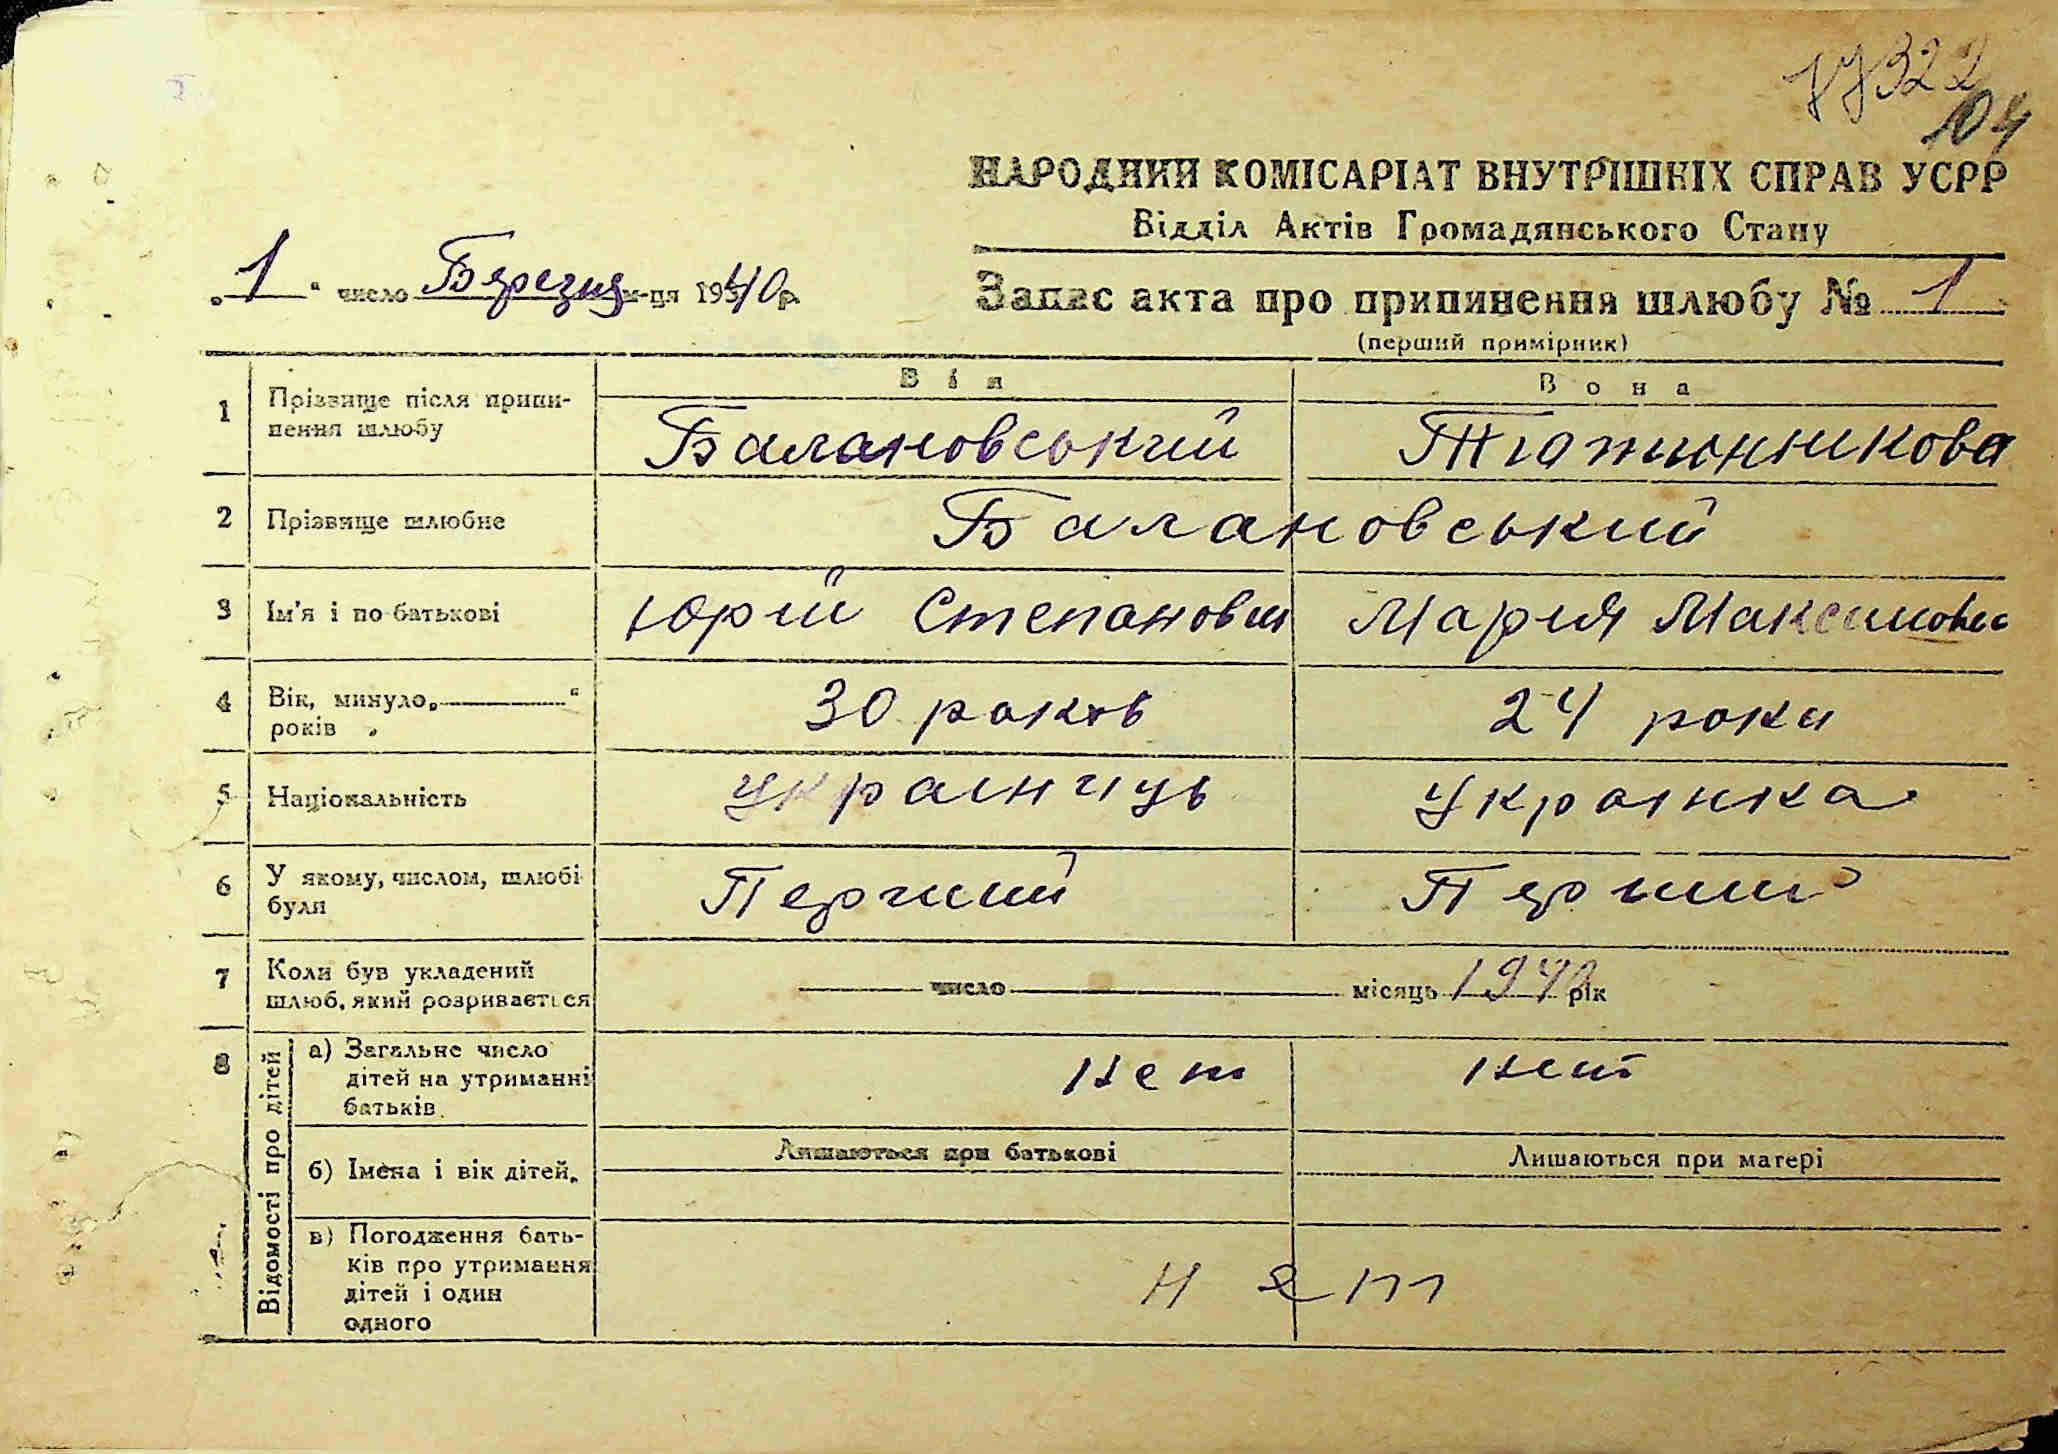 322
104
НАРОДНИЙ КОМІСАРІАТ ВНУТРІШНІХ СПРАВ УСРР
Відділ Актів Громадянського Стану
„1“ число Березня м-ця 1940 р.
Запис акта про припинення шлюбу № 1
(перший примірник)
Він Вона
1 Прізвище після припинення шлюбу Балановський Тютюнникова
2 Прізвище шлюбне Балановський
3 Ім'я і по-батькові Юрій Степанович Мария Максимовна
4 Вік, минуло „ “ років 30 раков 24 роки
5 Національність Українець Українка
6 У якому, числом, шлюбі були Перший Перший
7 Коли був укладений шлюб, який розривається число місяць 1940 рік
8 Відомості про дітей
а) Загальне число дітей на утриманні батьків нет нет
Лишаються при батькові Лишаються при матері
б) Імена і вік дітей.
в) Погодження батьків про утримання дітей і один одного нет